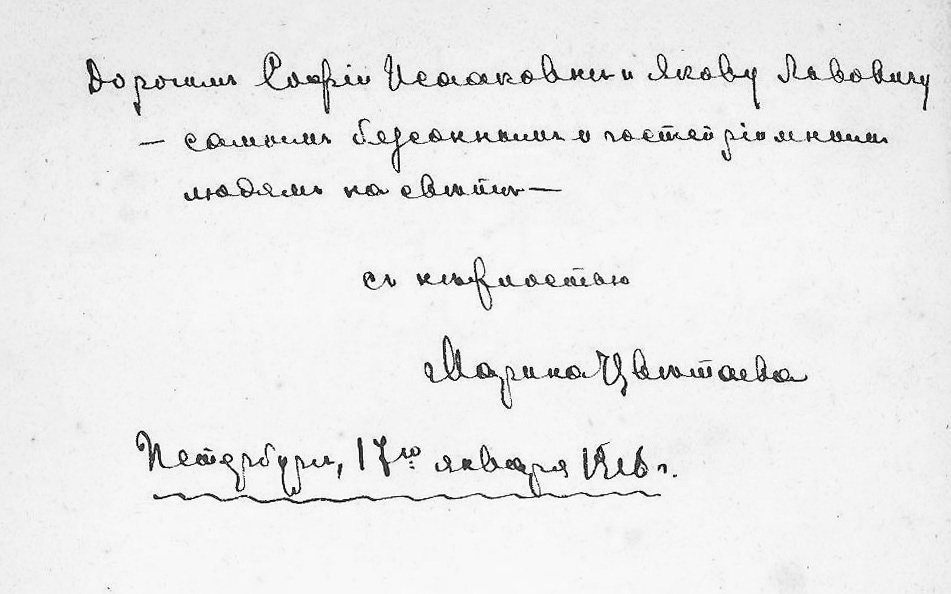 Дорогимъ Софіи Исааковнѣ и Якову Львовичу
— самымъ безсоннымъ и гостепріимнымъ
людямъ на свѣтѣ —
съ нѣжностью
Марина Цвѣтаева
Петербургъ, 17го января 1916 г.